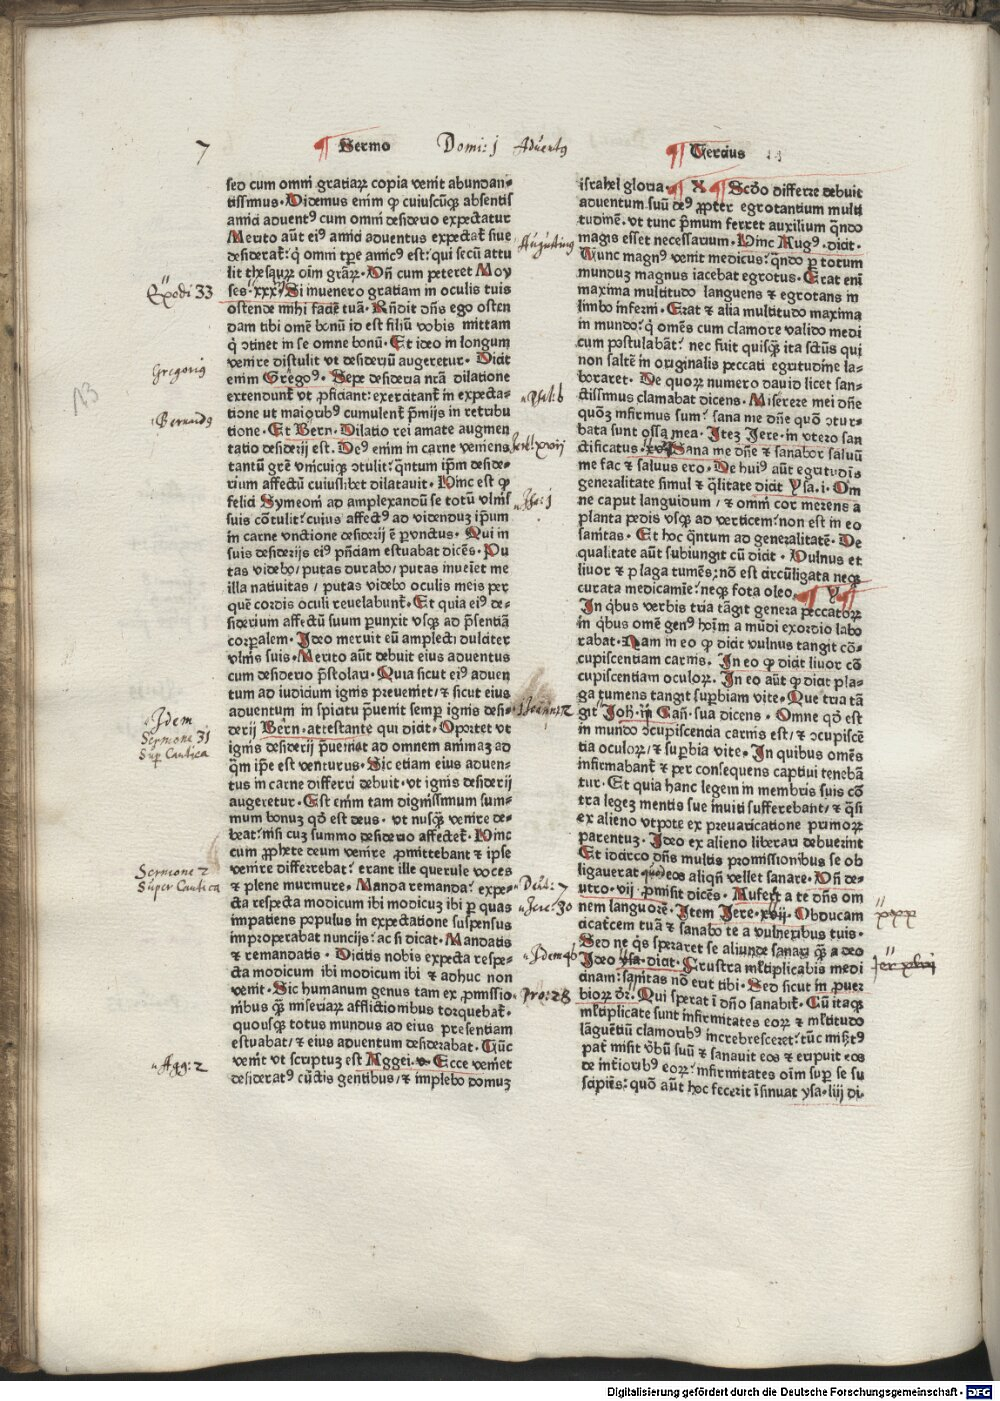 7 ¶ Sermo Domi: j Aduentꝰ ¶ Tercius
sed cum omni gratiaꝝ copia venit abundan⸗
tissimus. Uidemus enim ꝙ cuiuscūqꝫ absentis
amici aduentꝰ cum omni desiderio expectatur
Merito aūt eiꝰ amici aduentus expectat̄ siue
desiderat̄: q̇ omni tꝑe amicꝰ est: qui secū attu
lit thesauꝝ oīm grāꝝ. Un̄ cum peteret Moy
ses. xxx. Si inuenero gratiam in oculis tuis
ostende mihi faciē tuā. Rn̄dit dn̄s ego osten
dam tibi omē bonū id est filiū vobis mittam
q̇ ↄtinet in se omne bonū. Et ideo in longum
venire distulit vt desideriū augeretur. Dicit
enim Gregoꝰ. Sepe desideria nr̄a dilatione
extendunt̄ vt ꝓficiant: exercitant̄ in expecta⸗
tione vt maioribꝰ cumulent̄ p̄mijs in retribu
tione. Et Bern. Dilatio rei amate augmen
tatio desiderij est. Deꝰ enim in carne veniens
tantū grē vnicuiqꝫ ↄtulit: q̄ntum ip̄m deside⸗
rium affectū cuiuslibet dilatauit. Hinc est ꝙ
felici Symeoni ad amplexandū se totū vlnis
suis cōtulit: cuius affectꝰ ad videnduꝫ ip̄um
in carne vnctione desiderij ē ꝑunctus. Qui in
suis desiderijs eiꝰ pn̄ciam estuabat dicēs. Pu
tas videbo / putas durabo / putas inueiet me
illa natiuitas / putas videbo oculis meis per
quē cordis oculi reuelabunt̄. Et quia eiꝰ de⸗
siderium affectū suum ꝑunxit vsqꝫ ad p̄sentiā
corꝑalem. Ideo meruit eū amplecti dulciter
vlnis suis. Merito aūt debuit eius aduentus
cum desiderio p̄stolari. Quia sicut eiꝰ aduen
tum ad iudicium ignis preueniet / ⁊ sicut eius
aduentum in spiritu p̄uenit semp ignis desi⸗
derij Bern. attestante qui dicit. Oportet vt
ignis desiderij p̄ueniat ad omnem animaꝫ ad
q̄m ip̄e est venturus. Sic etiam eius aduen⸗
tus in carne differri debuit. vt ignis desiderij
augeretur. Est enim tam dignissimum sum⸗
mum bonuꝫ qd̄ est deus. vt nusq̄ venire de⸗
beat: nisi cuꝫ summo desiderio affectet̄. Hinc
cum ꝓphete deum venire ꝓmittebant ⁊ ipse
venire differrebat: erant ille querule voces
⁊ plene murmure. Manda remanda: expe⸗
cta respecta modicum ibi modicuꝫ ibi ꝑ quas
impatiens populus in expectatione suspensus
improperabat nuncijs: ac si dicat. Mandatis
⁊ remandatis. Dicitis nobis expecta respe⸗
cta modicum ibi modicum ibi ⁊ adhuc non
venit. Sic humanum genus tam ex ꝓmissio
nibus q̄ꝫ miseriaꝝ afflictionibus torquebat̄.
quousqꝫ totus mundus ad eius presentiam
estuabat / ⁊ eius aduentum desiderabat. Tūc
venit vt scriptuꝫ est Aggei. Ecce veniet
desideratꝰ cūctis gentibus / ⁊ implebo domuꝫ
Exodi 33
Gregoriꝰ
Bernardꝰ
Idem
Sermone 31
Sup̄ Cantica
Sermone 2
Super Cantica
Agg: 2
13
israhel gloria. ¶ X ¶ Scd̄o differre debuit
aduentum suū deꝰ ꝓpter egrotantium multi
tudinē. vt tunc p̄mum ferret auxilium q̄ndo
magis esset necessarium. Hinc Augꝰ. dicit.
Tunc magnꝰ venit medicus: q̄ndo ꝑ totum
munduꝫ magnus iacebat egrotus. Erat enī
maxima multitudo languens ⁊ egrotans in
limbo inferni. Erat ⁊ alia multitudo maxima
in mundo: q̇ omēs cum clamore valido medi
cum postulabāt: nec fuit quisq̄ꝫ ita sctūs qui
non saltē in originalis peccati egritudine la⸗
boraret. De quoꝝ numero dauid licet san⸗
ctissimus clamabat dicens. Miserere mei dn̄e
quōꝫ infirmus sum: sana me dn̄e quō ↄtur⸗
bata sunt ossa mea. Iteꝫ Jere. in vtero san
ctificatus. xvij Sana me dn̄e ⁊ sanabor saluū
me fac ⁊ saluus ero. De huiꝰ aūt egritudīs
generalitate simul ⁊ q̄litate dicit Ysa. i. Om
ne caput languidum / ⁊ omni cor merens a
planta pedis vsqꝫ ad verticem: non est in eo
sanitas. Et hoc q̄ntum ad generalitatē. De
qualitate aūt subiungit cū dicit. Uulnus et
liuor ⁊ plaga tumēs: nō est circūligata neqꝫ
curata medicamīe: neqꝫ fota oleo. ¶ Y ¶
In q̇bus verbis tria tāgit genera peccatoꝝ
in q̇bus omē genꝰ hoīm a mūdi exordio labo
rabat. Nam in eo ꝙ dicit vulnus tangit cō⸗
cupiscentiam carnis. In eo ꝙ dicit liuor cō
cupiscentiam oculoꝝ. In eo aūt ꝙ dicit pla⸗
ga tumens tangit suꝑbiam vite. Que tria tā
git Joh. in Can̄. sua dicens. Omne qd̄ est
in mundo ↄcupiscencia carnis est / ⁊ ↄcupiscē
tia oculoꝝ / ⁊ suꝑbia vite. In quibus omēs
infirmabant̄ ⁊ per consequens captiui tenebā
tur. Et quia hanc legem in membris suis cō
tra legeꝫ mentis sue inuiti sufferebant / ⁊ q̄si
ex alieno vtpote ex preuaricatione primoꝝ
parentuꝫ. Ideo ex alieno liberari debuerint
Et idcirco dn̄s multis promissionibus se ob
ligauerat eos aliqn̄ vellet sanare. Un̄ de⸗
utro. vij. ꝓmisit dicēs. Aufert a te dn̄s om
nem languorē. Item Jere. xvij. Obducam
cicatcem tuā ⁊ sanabo te a vulneribus tuis.
Sed ne q̇s speraret se aliunde sanari q̄ꝫ a deo
Ideo ysa. dicit. Frustra mĺtiplicabis medi
cinam: sanitas nō erit tibi. Sed sicut in ꝓuer
bioꝝ dr̄. Qui sperat ī dn̄o sanabit̄. Cū itaqꝫ
mĺtiplicate sunt infirmitates eoꝝ ⁊ mĺtitudo
lāguētiū clamoribꝰ increbresceret: tūc misit̄ꝰ
pat̄ misit v̄bū suū ⁊ sanauit eos ⁊ eripuit eos
de īteriōibꝰ eoꝝ: infirmitates oīm suꝑ se su
scipiēs: quō aūt hoc fecerit īsinuat ysa. liij di.
Augustinꝰ
Psal: 6
Jere: xvij
Isa: j
1 Joannis 2
Deut: 7
Jere: 30
Idem 46
Pro: 28
xxx
Jer xlvj
Digitalisierung gefördert durch die Deutsche Forschungsgemeinschaft - DFG